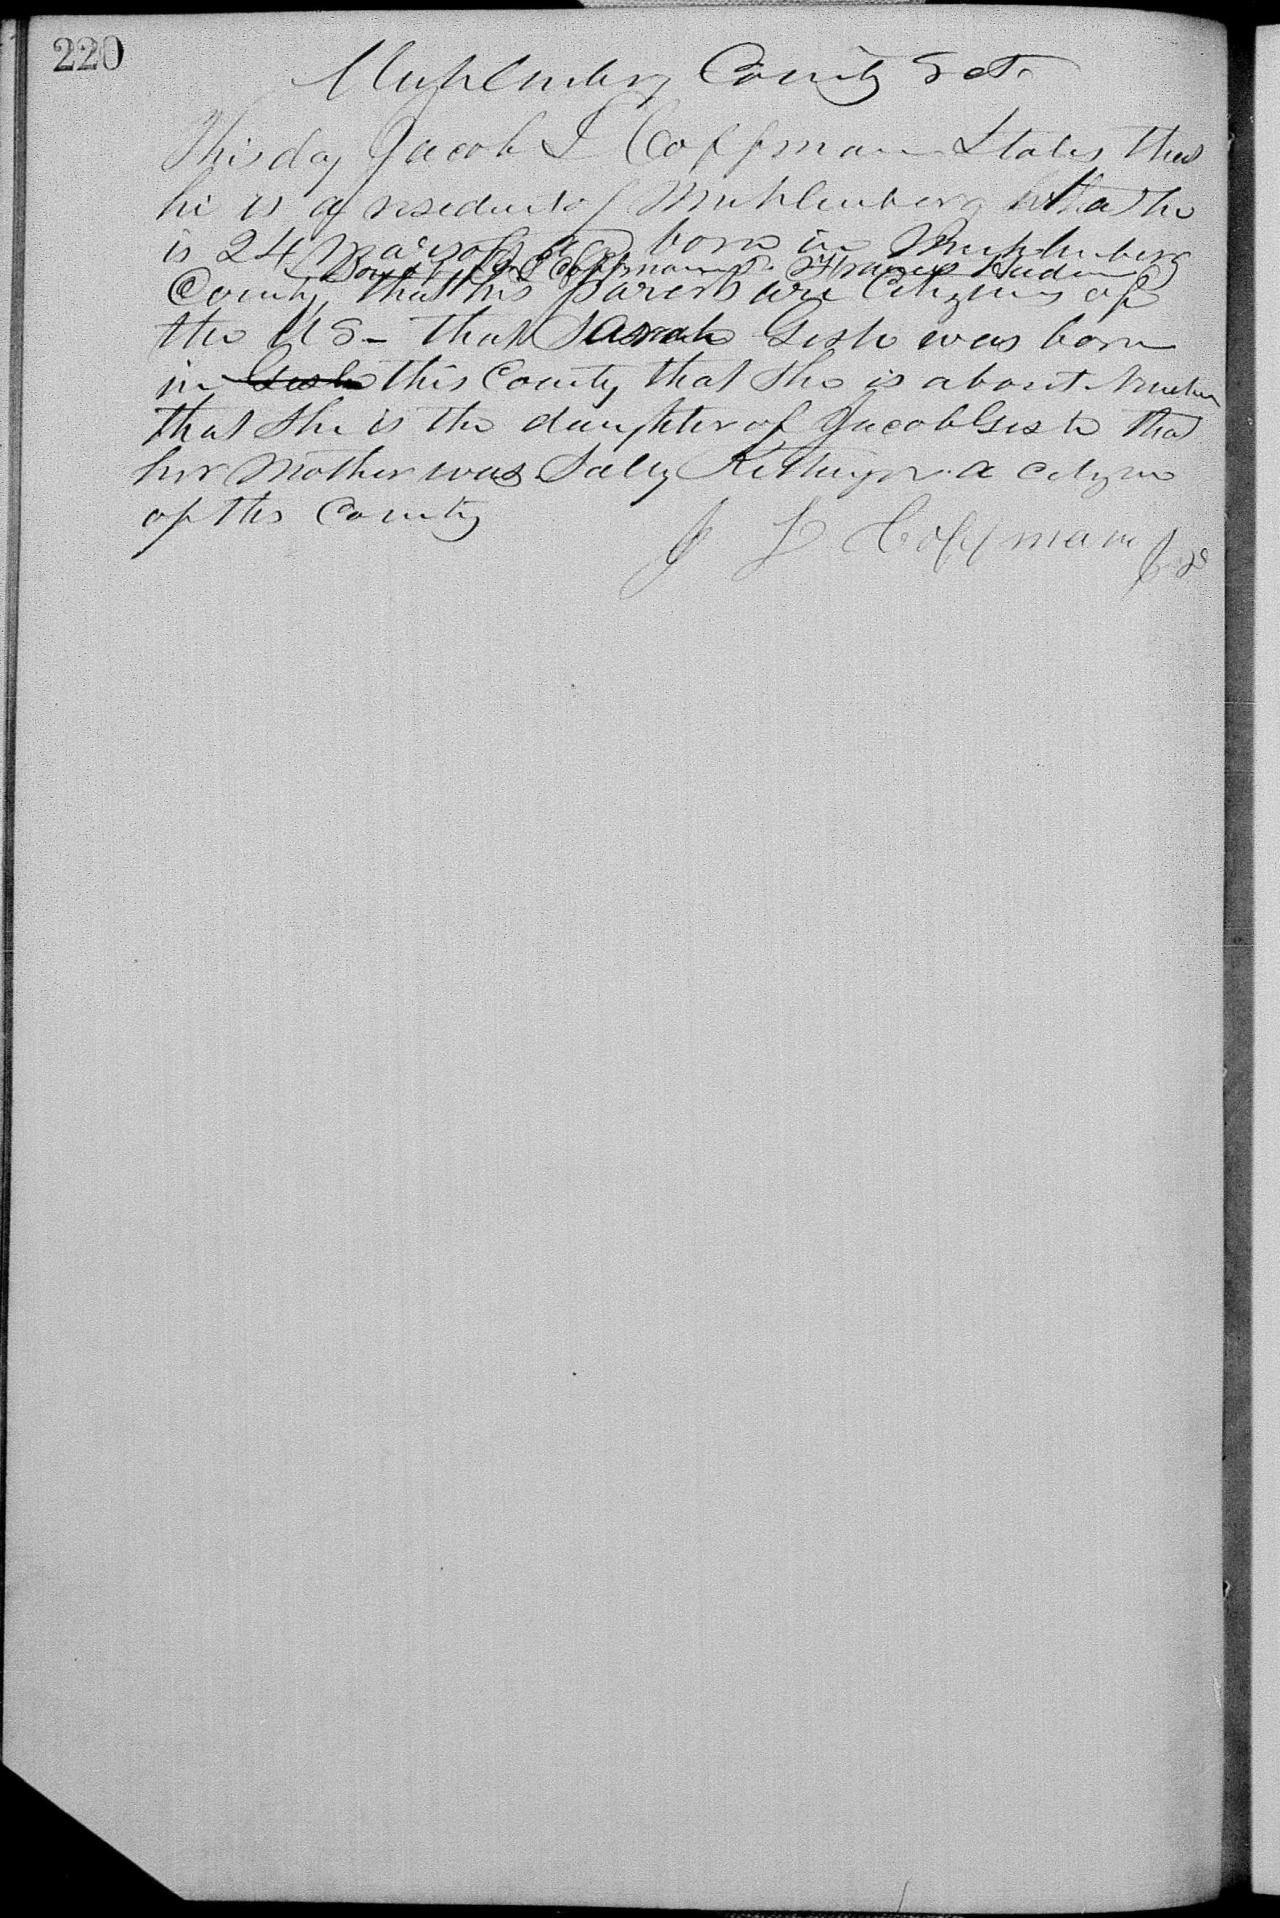 220
Muhlenberg County Sct.
This day Jacob L Coffman States that
he is a resident of Muhlenberg that he
is 24 years of age born in Muhlenberg
Coffman & Frances
County, that his parents are Citizens of
the US - that Sarah Gish was born
in Gish this County that she is about
that she is the daughter of Jacob Gish that
her Mother was Sally Kittinger a citizen
of this County
J L Coffman